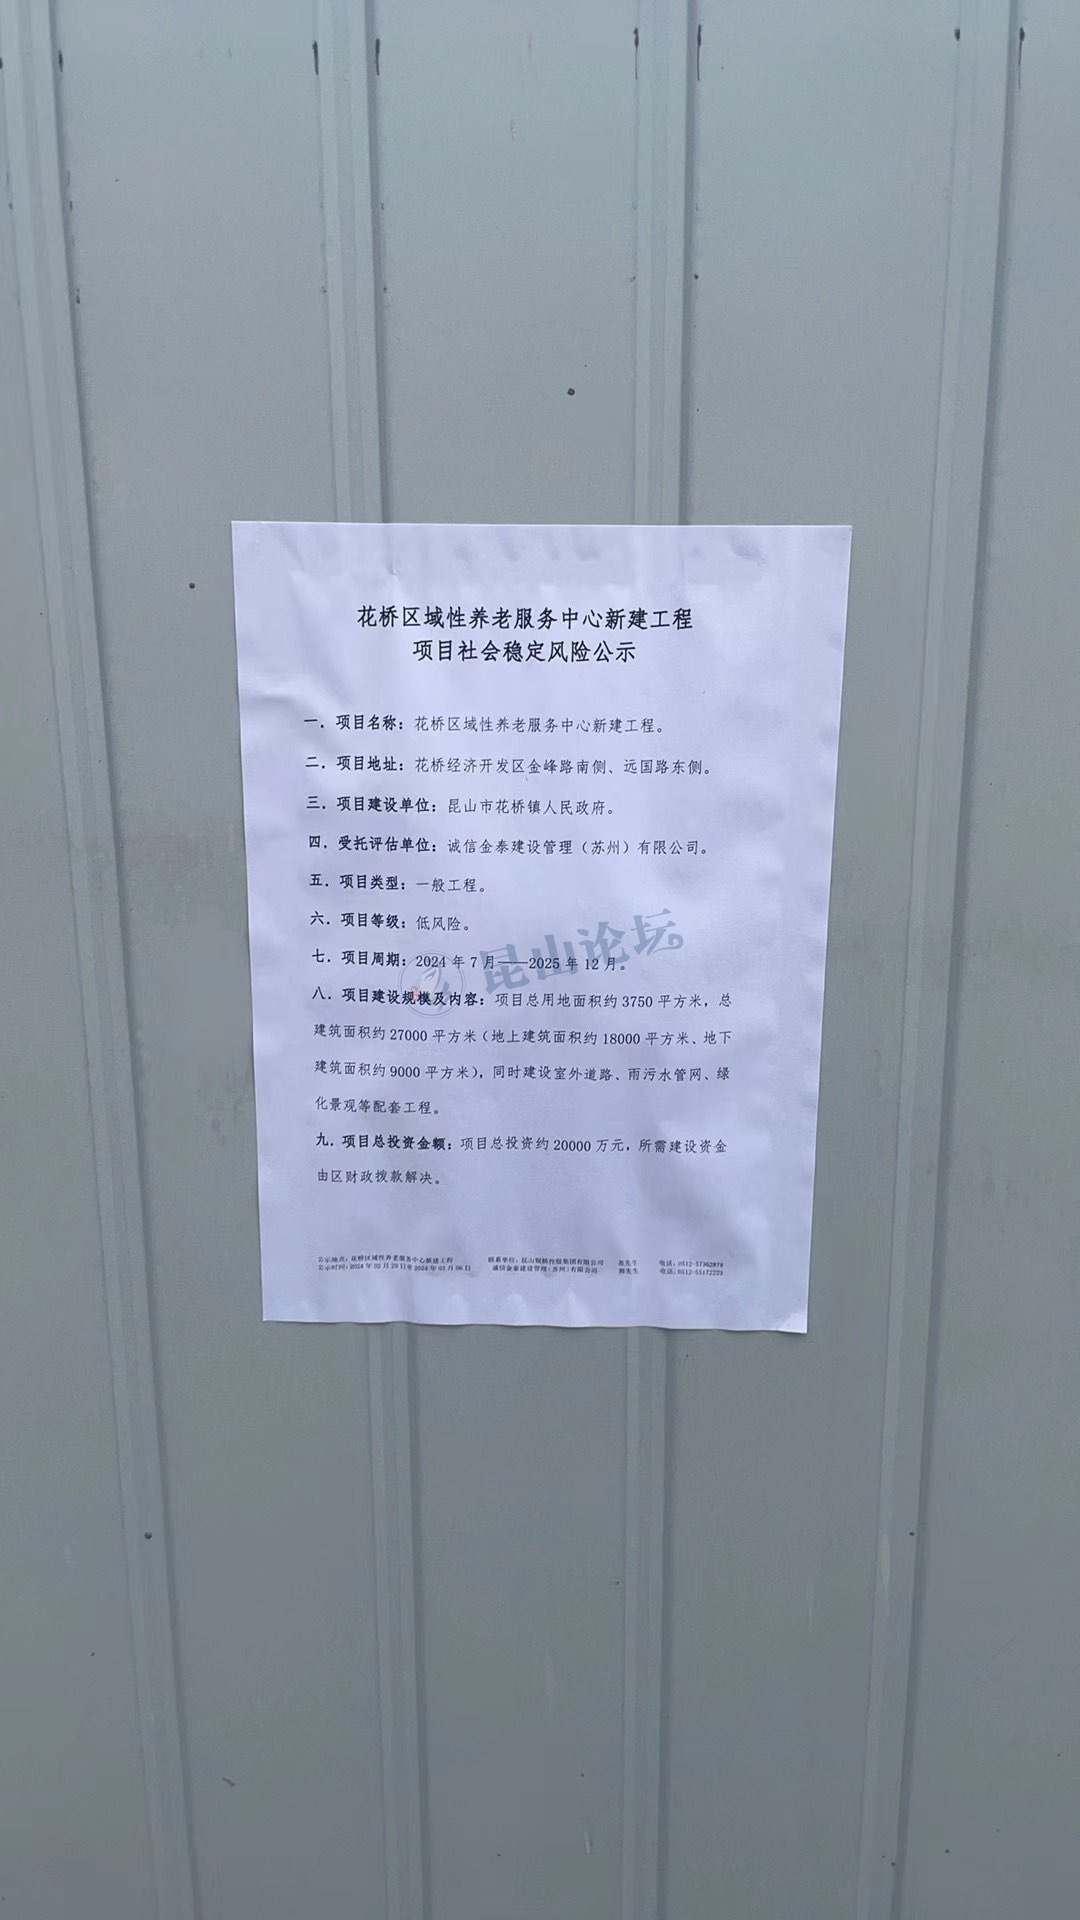 花桥区域性养老服务中心新建工程
项目社会稳定风险公示
一．项目名称：花桥区域性养老服务中心新建工程。
二．项目地址：花桥经济开发区金峰路南侧、远国路东侧。
三．项目建设单位：昆山市花桥镇人民政府。
四．受托评估单位：诚信金泰建设管理（苏州）有限公司。
五．项目类型：一般工程。
六．项目等级：低风险。
昆山论坛
七．项目周期：2024 年 7 月——2025 年 12 月。
八．项目建设规模及内容：项目总用地面积约 3750 平方米，总
建筑面积约 27000 平方米（地上建筑面积约 18000 平方米、地下
建筑面积约 9000 平方米），同时建设室外道路、雨污水管网、绿
化景观等配套工程。
九．项目总投资金额：项目总投资约 20000 万元，所需建设资金
由区财政拨款解决。
公示地点：花桥区域性养老服务中心新建工程 联系单位：昆山银桥控股集团有限公司 苏先生 电话：0512-57362878
公示时间：2024 年 02 月 29 日至 2024 年 03 月 06 日 诚信金泰建设管理（苏州）有限公司 韩先生 电话：0512-55172223